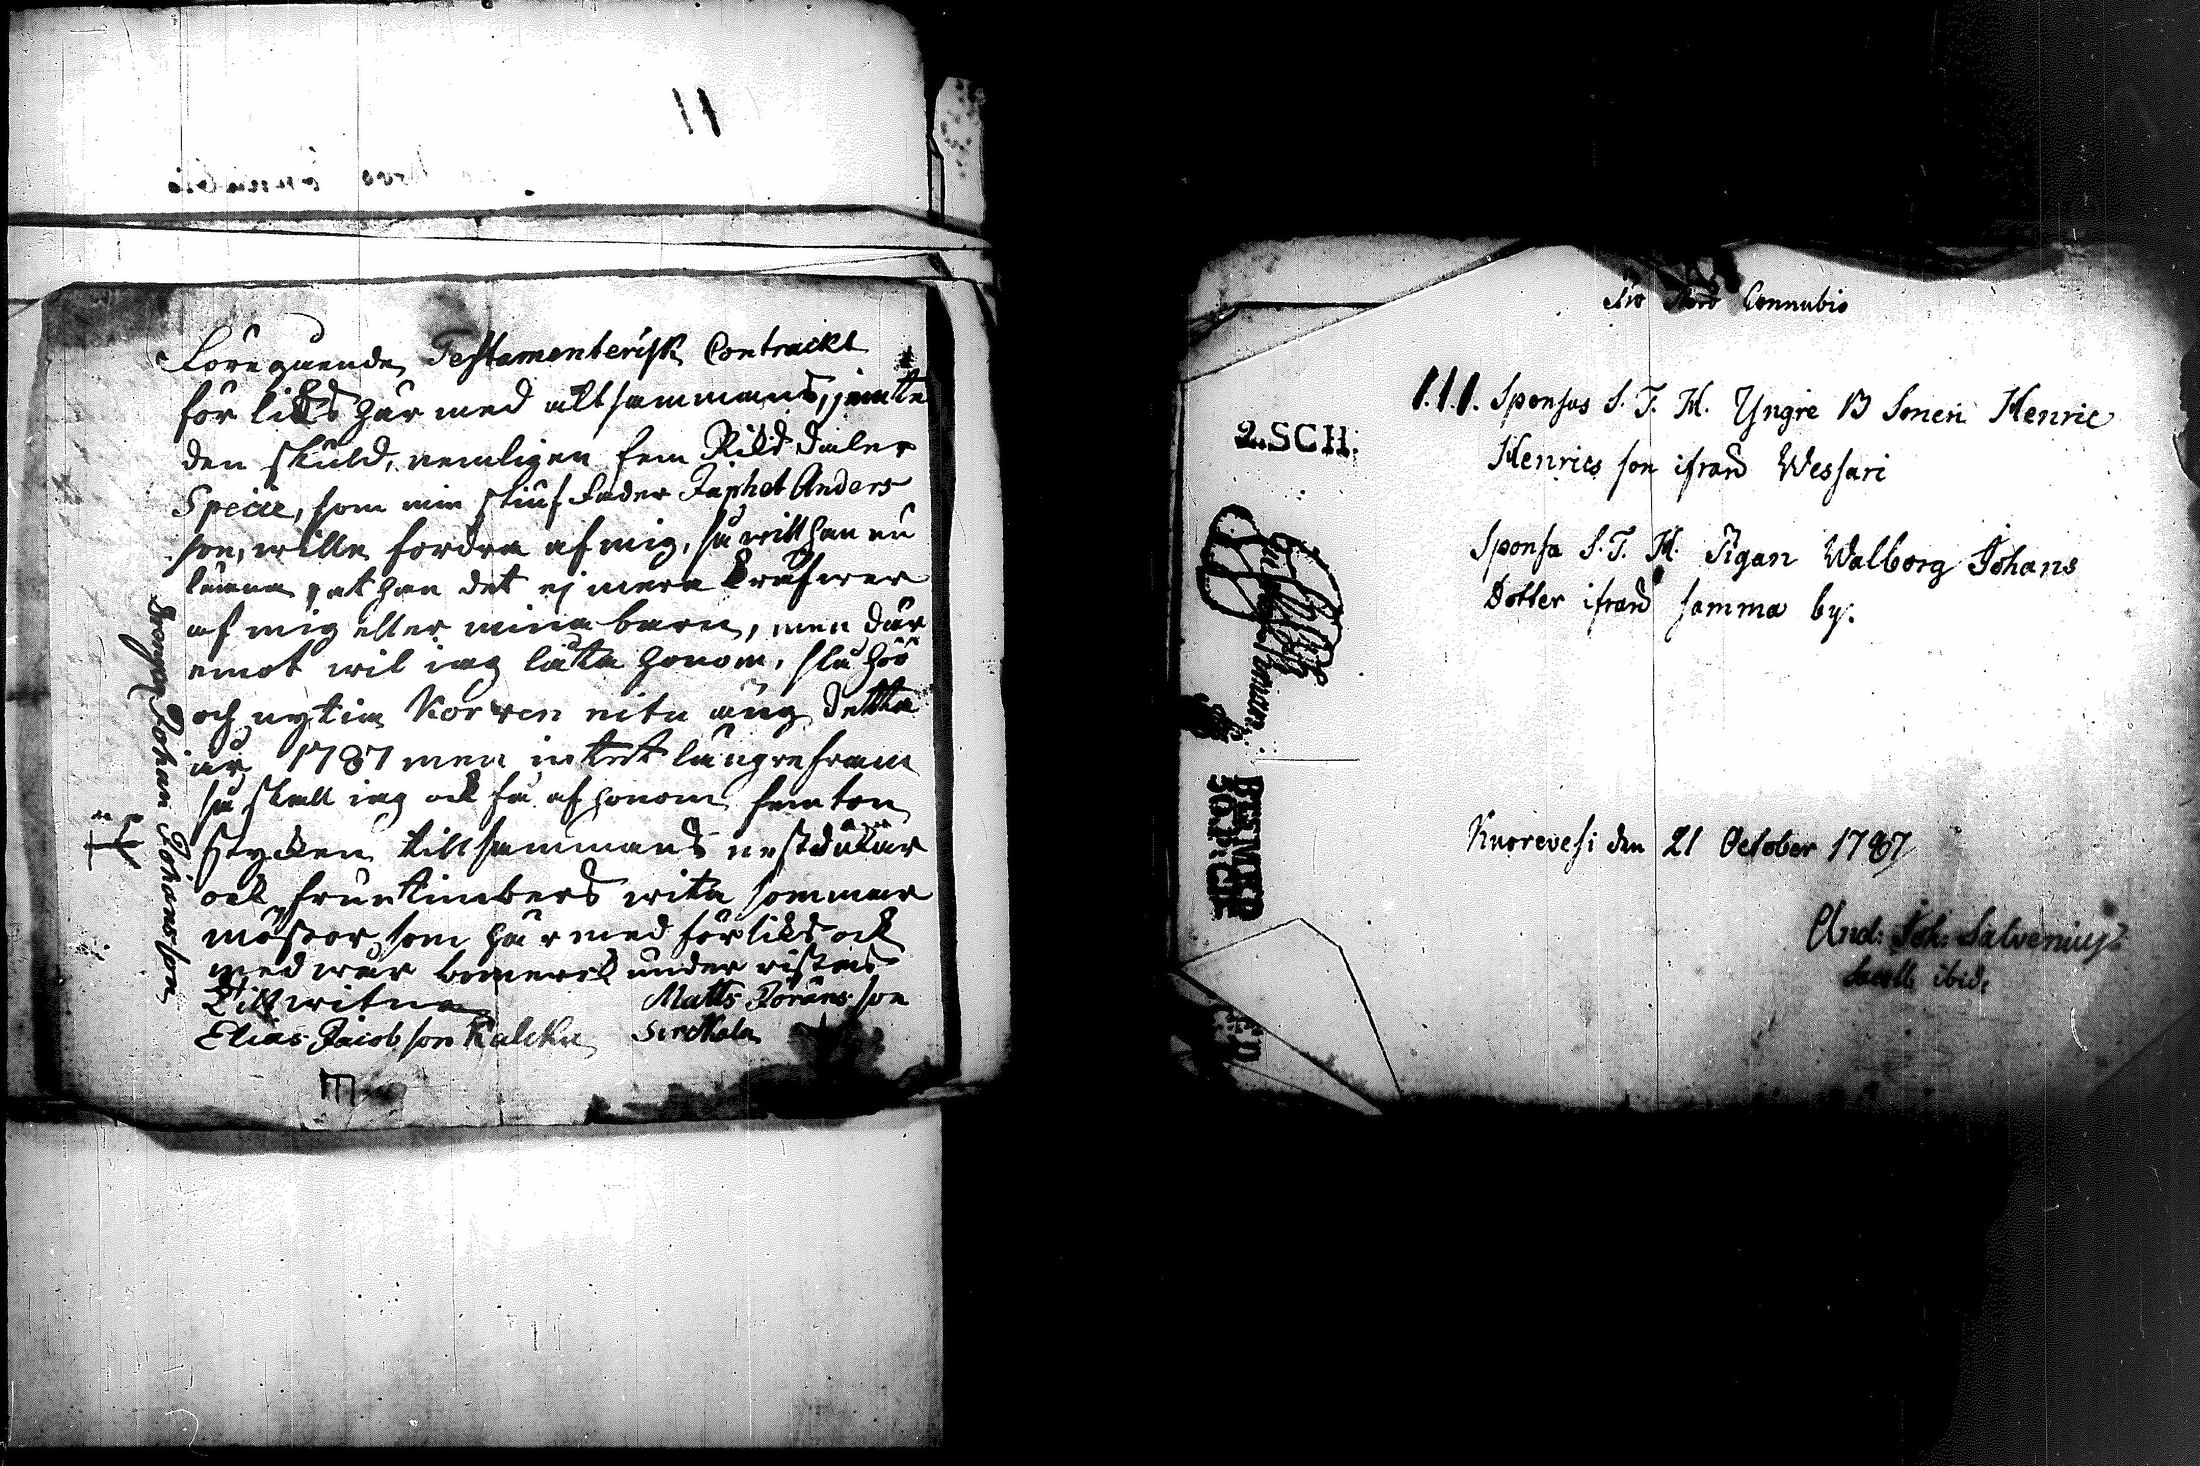 11
Föregående Testamenterisk Contrackt
förliks här med altsammans, jemte
den skuld, nemligen fem Riksdaler
Specie, som min stiuf fader Japhet Anders
son, wille fordra af mig, så will han nu
lämna, at han det ej mera kräfwer
af mig eller mina barn, men där
emot wil iag låta honom, slå höö
och nytia Korwen nitu äng detta
år 1787 men intet längre fram
så skall iag ock få af honom femton
stycken tillsammans nestdukar
ock fruntimbers wita sommar
mössor, som här med förliks ock
med wår bomerck under ristas
Till witne Matts Jörans son
Elias Jacob son Kulcku Sirckala
Drengen Johan Johansson
Pro Thoro Connubio
1.1.1. Sponsus S. T. H. Yngre B Sonen Henric
Henrics son ifrån Wessari
Sponsa S. T. H. Pigan Walborg Johans
Dotter ifrån samma by.
Kuorevesi den 21 October 1787
And: Joh: Salvenius
Sacell: ibid:
2.SCH.